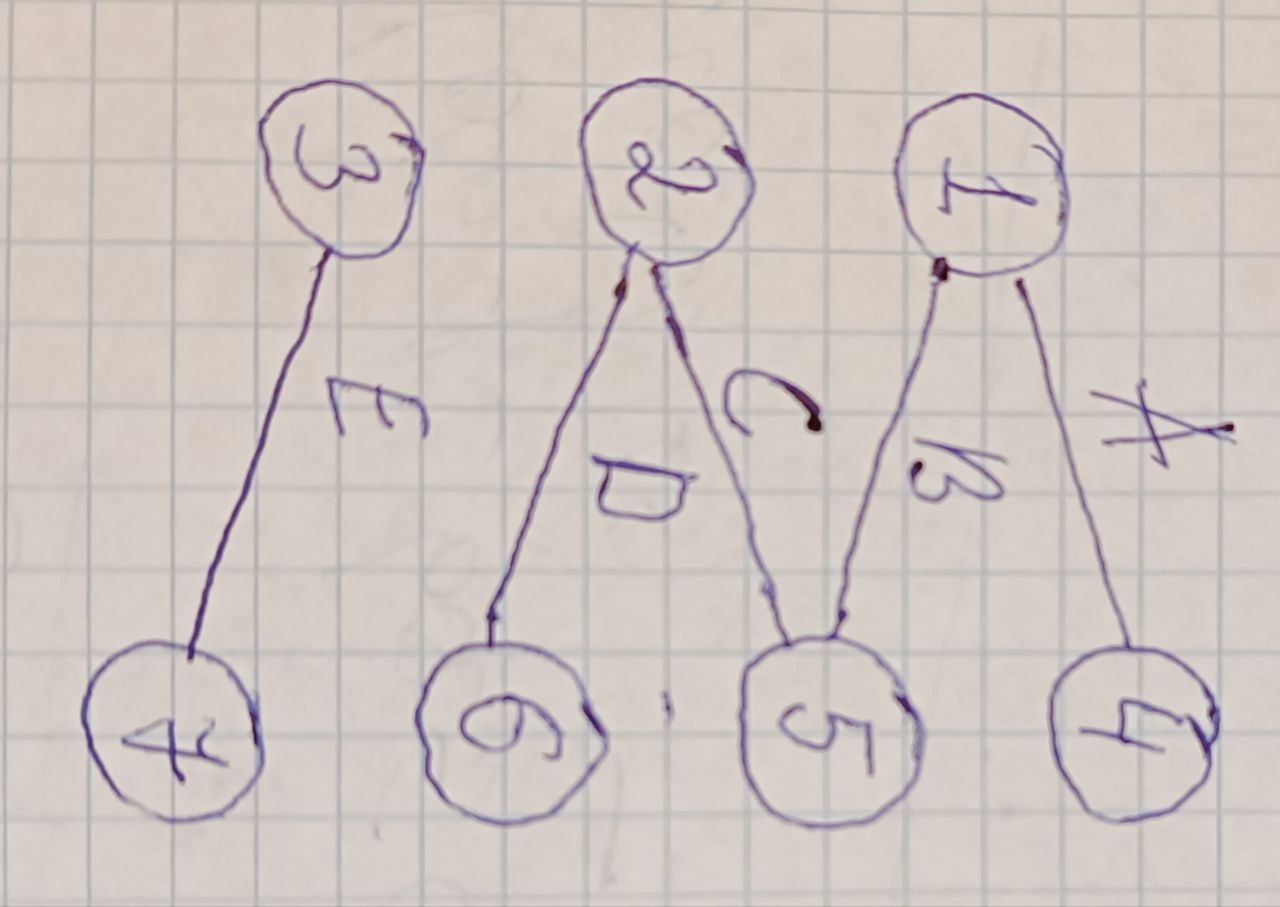 A
4
1
B
5
C
2
D
6
E
3
7